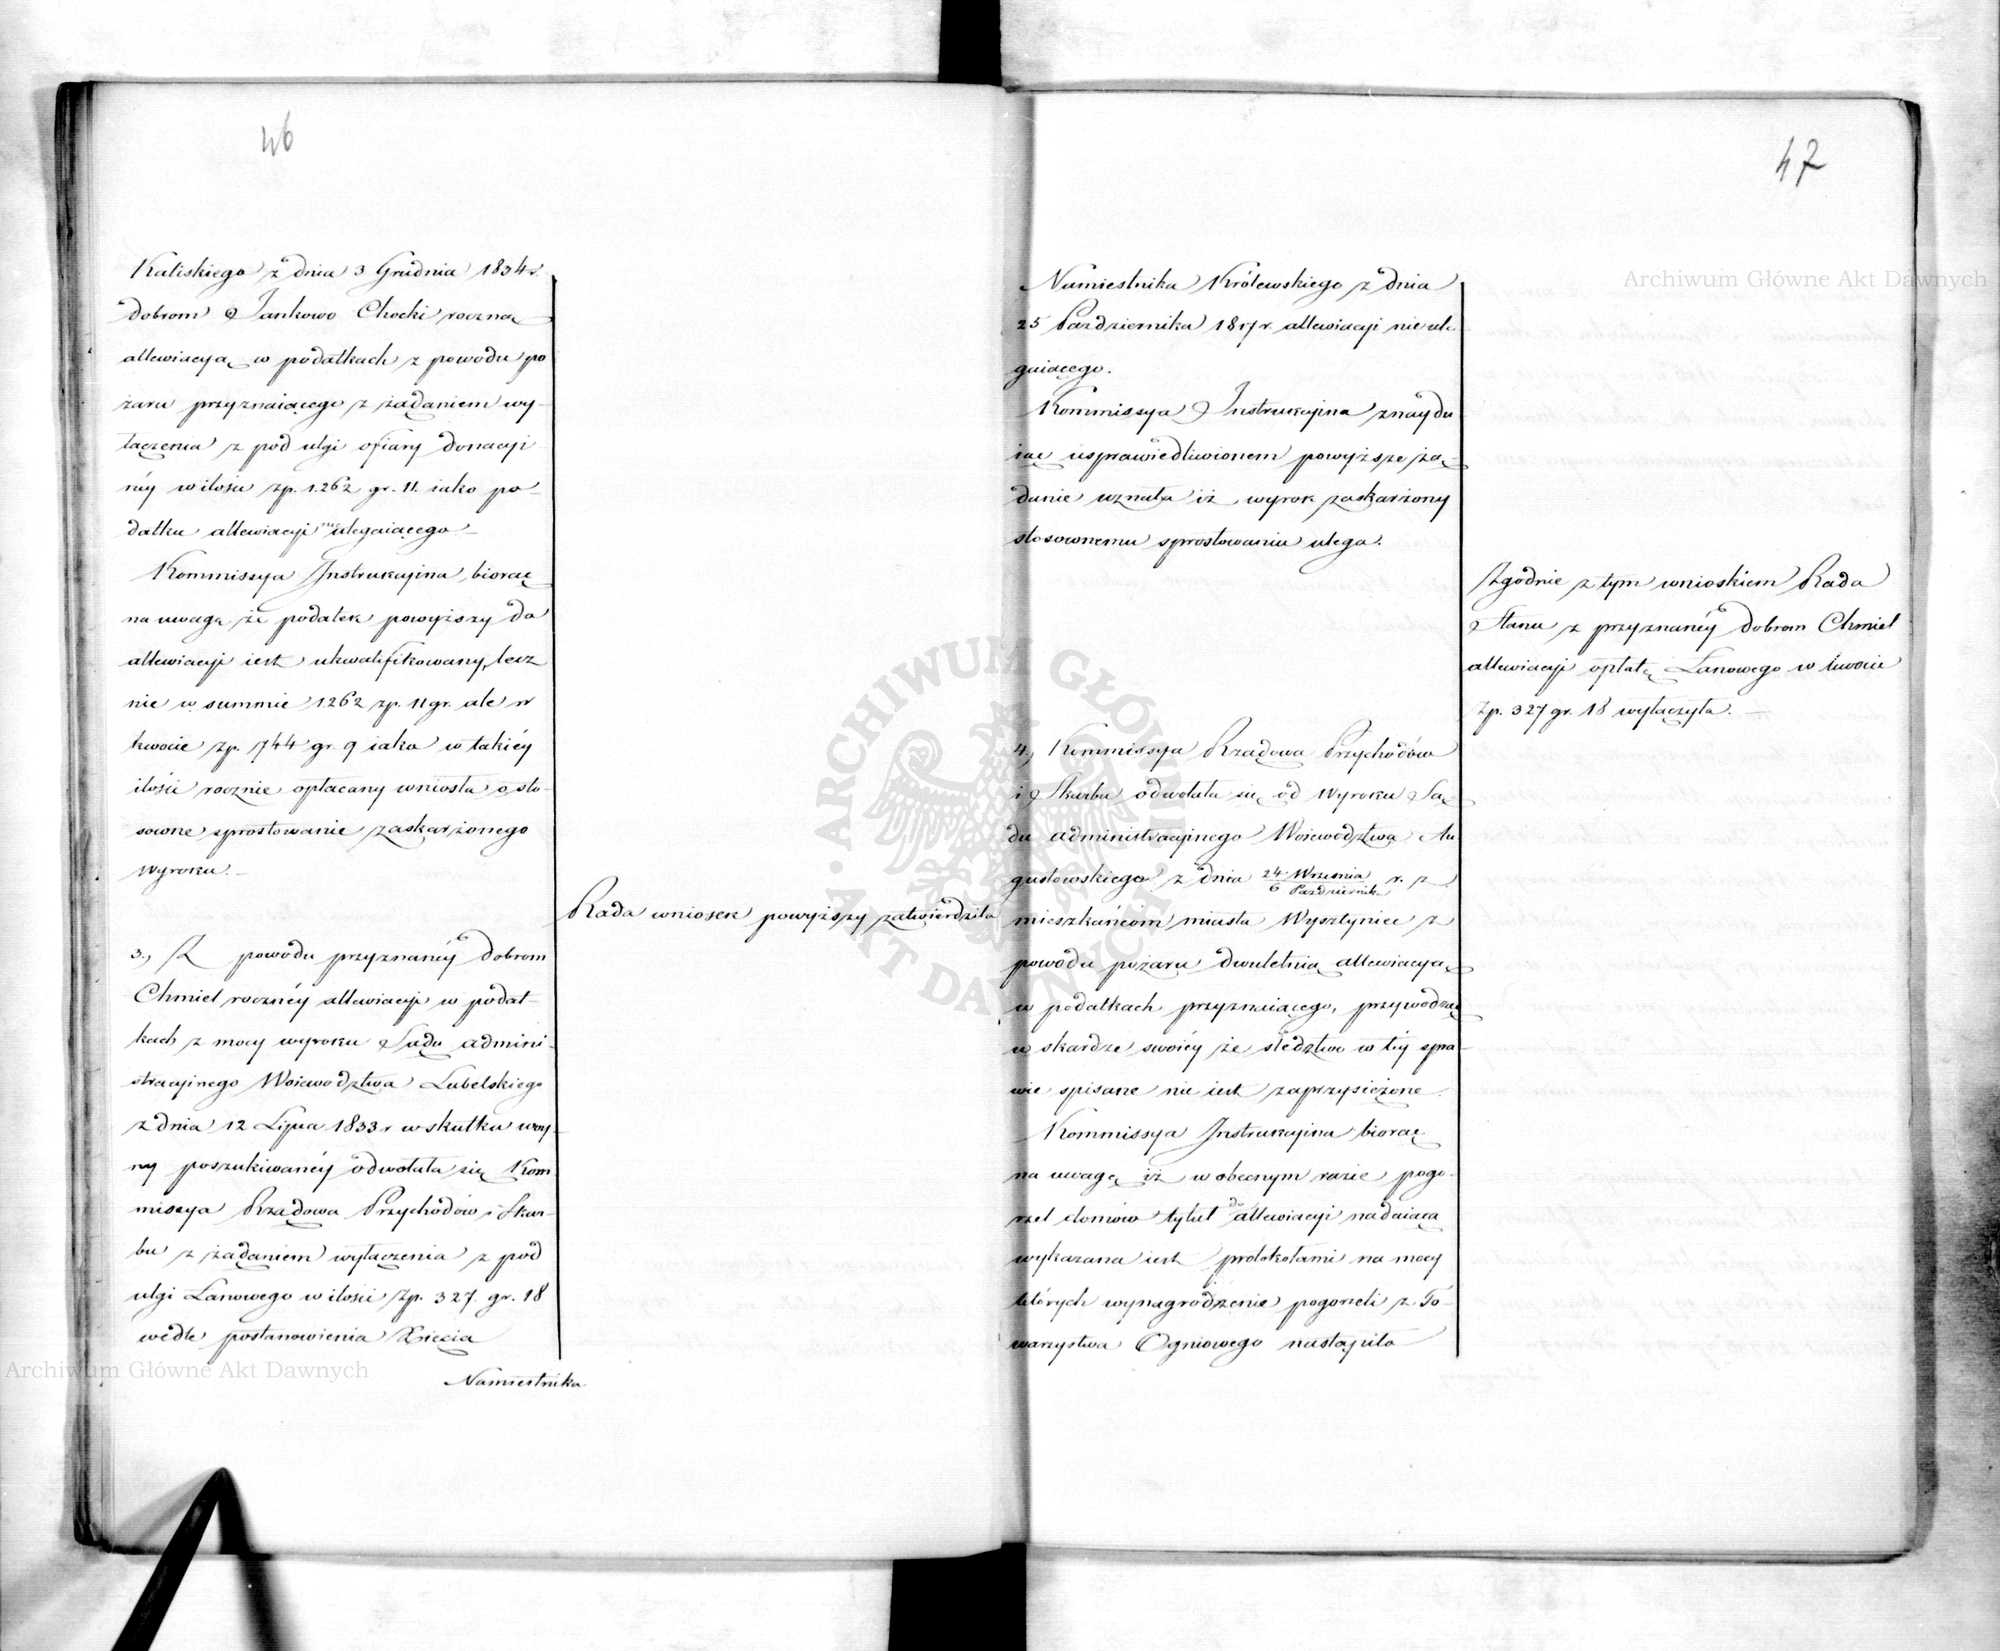 46
Kaliskiego z dnia 3 Grudnia 1834 r.
dobrom Jankowo Chocki roczną
allewiacyą w podatkach z powodu po
żaru przyznaiącego z żądaniem wy-
łączenia z pod ulgi ofiary donacyi-
néy w ilości zp. 1.262 gr. 11. iako po-
datku allewiacyi nie ulegaiącego
Kommissya Instrukcyina biorąc
na uwagę że podatek powyższy do
allewiacyi iest ukwalifikowany, lecz
nie w summie 1262 zp. 11 gr. ale w
kwocie zp. 744 gr. 9 iako w takiéy
ilości rocznie opłacany wniosła o sto-
sowne sprostowanie zaskarżonego
wyroku.
Rada wniosek powyższy zatwierdziła
3., Z powodu przyznanéy dobrom
Chmiel rocznéy allewiacyi w podat-
kach z mocy wyroku Sądu admini-
stracyinego Woiewództwa Lubelskiego
z dnia 12 Lipca 1833 r w skutku
poszukiwanéy odwołała się Kom
missya Rządowa Przychodów i Skar-
bu z żądaniem wyłączenia z pod
ulgi Łanowego w ilości Zp. 327 gr. 18
wedle postanowienia Xięcia
Namiestnika
47
Namiestnika Królewskiego z dnia
25 Października 18 r. allewiacyi nie ule-
gaiącego.
Kommissya Instrukcyina znaydu
iąc usprawiedliwionem powyższe żą-
danie uznała iż wyrok zaskarżony
stosownemu sprostowaniu ulega.
Zgodnie z tym wnioskiem Rada
Stanu z przyznanéy dobrom Chmiel
allewiacyi opłatę Łanowego w kwocie
Zp. 327 gr. 18 wyłączyła.
4., Kommissya Rządowa Przychodów
i Skarbu odwołała się od Wyroku Są-
du administracyinego Woiewództwa Au
gustowskiego z dnia 24 Września / 6 Październik r. z.
mieszkańcom miasta Wysztyniec z
powodu pożaru dwuletnią allewiacyą
w podatkach przyznaiącego, przywodząc
w skardze swoiéy że śledztwo w téy spra-
wie spisane nie iest zaprzysiężone.
Kommissya Instrukcyina biorąc
na uwagę iż w obecnym razie pogo-
rzel domów tytuł do allewiacyi nadaiąca
wykazana iest protokołami na mocy
których wynagrodzenie pogorzeli z To-
warzystwa Ogniowego nastąpiło
Archiwum Główne Akt Dawnych
Archiwum Główne Akt Dawnych
ARCHIWUM GŁÓWNE AKT DAWNYCH